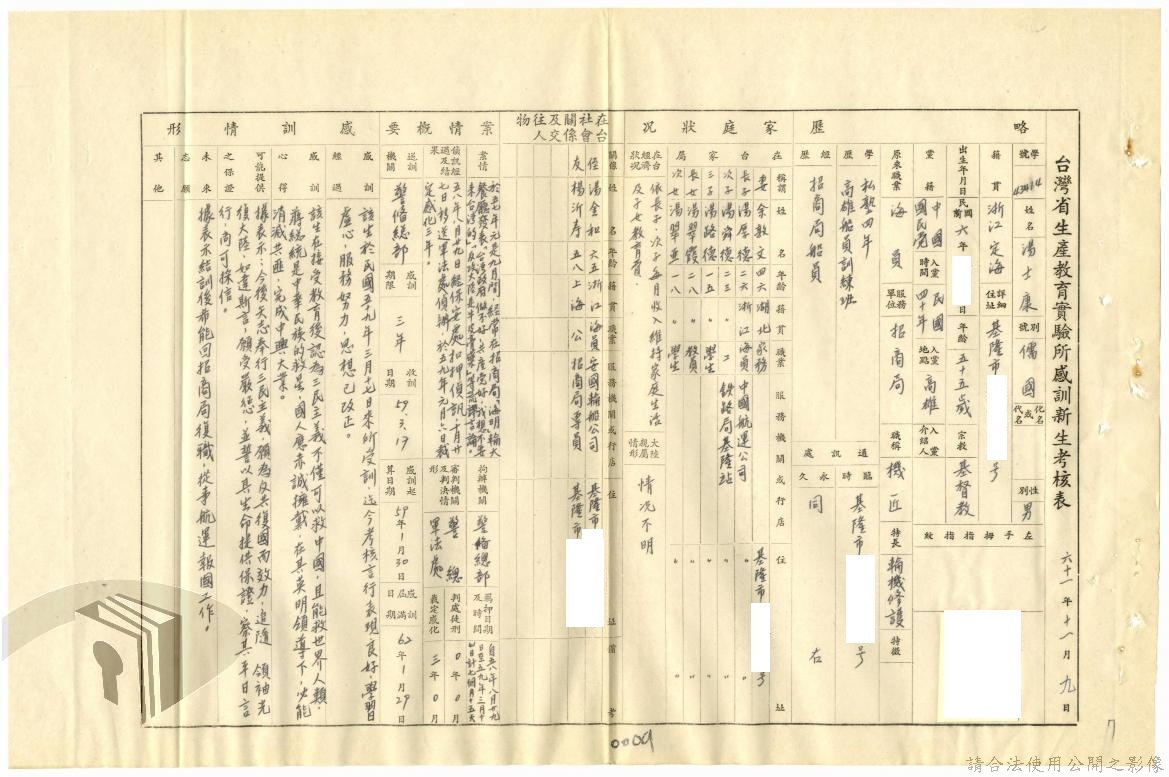 台灣省生產教育實驗所感訓新生考核表
六十一年十一月九日
略歷
學號 43414
姓名 湯士康
別號 儒國
化名或代名
性別 男
左手拇指指紋
籍貫 浙江定海
詳細住址 基隆市 號
出生年月日 民國前六年
年齡 五十五歲
宗教 基督教
黨籍 中國國民黨
入黨時間 民國四十年
入黨地點 高雄
入黨介紹人
原來職業 海員
服務單位 招商局
職稱 機匠
特長 輪機修護
特徵
學歷 私塾四年
高雄船員訓練班
經歷 招商局船員
通訊處
臨時 基隆市 號
永久 同右
家庭狀況
在台家局
稱謂 姓名 年齡 籍貫 職業 服務機關或行店 住址
妻 余教文 四六 湖北 家務 基隆市 號
長子 湯厚德 二六 浙江 海員 中國航運公司 〃 〃
次子 湯舜德 二三 〃 工 鐵路局基隆站 〃 〃
三子 湯路德 一五 〃 學生 〃 〃
長女 湯翠霞 二八 〃 教員 〃 〃
次女 湯翠亞 一八 〃 學生 〃 〃
在台經濟狀況 依長子、次子每月收入維持家庭生活
及子女教育費。
大陸親屬情形 情況不明
在台社會關係及交往人物
關係 姓名 年齡 籍貫 職業 服務機關或行店 住址 備考
侄 湯全和 六五 浙江 海員 安國輪船公司 基隆市
友 楊沂寿 五八 上海 公 招商局專員 基隆市
案情概要
案情 於五七年元月九月間，經常在招商局海明輪大
餐廳發表「台灣政府做不好，共產黨好，我想不要
來台灣的」
偵訊經過及結果 五八年八月廿九日經保安處扣押偵訊，十月廿
七日移送軍法處偵辦，於五九年元月六日裁
定感化三年。
拘辦機關 警備總部
羈押日期及時間 自五八年八月廿九
日至五九年三月十
審判機關及判決情形 警總軍法處
判處徒刑 0年0月
裁定感化 三年0月
送訓機關 警備總部
感訓期限 三年
收訓日期 59.3.17
感訓起算日期 59年1月30日
感訓屆滿日期 62年1月29日
感訓情形
感訓經過 該生於民國五九年三月十七日來所受訓，迄今考核言行表現良好，學習
虛心，服務努力，思想已改正。
感訓心得 該生在接受教育後認為三民主義不僅可以救中國，且能救世界人類，
蔣總統是中華民族的救星，國人應赤誠擁戴，在其英明領導下，必能
消滅共匪，完成中興大業。
可能提供之保證 據表示：今後矢志奉行三民主義，願為反共復國而效力，追隨 領袖光
復大陸，如違斯言，願受嚴懲，並誓以其生命提供保證，察其平日言
行，尚可採信。
未來志願 據表示結訓後希能回招商局復職，從事航運報國工作。
其他
0009
7
請合法使用公開之影像